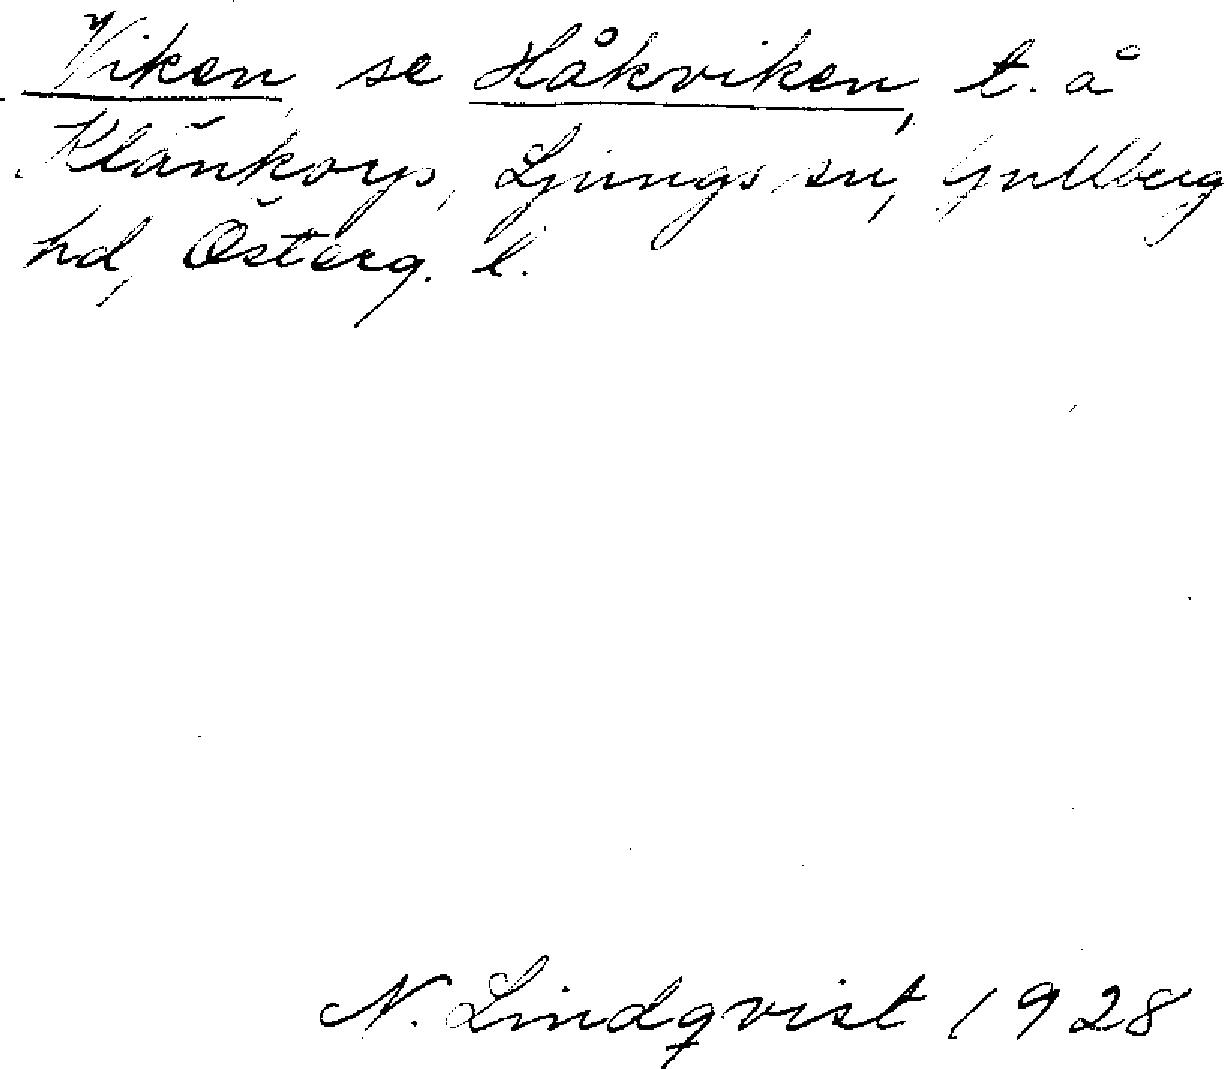 Viken, se Håkviken, t. å
Klänkorp, Ljungs sn, Gullberg
hd, Österg. l.
N. Lindqvist 1928